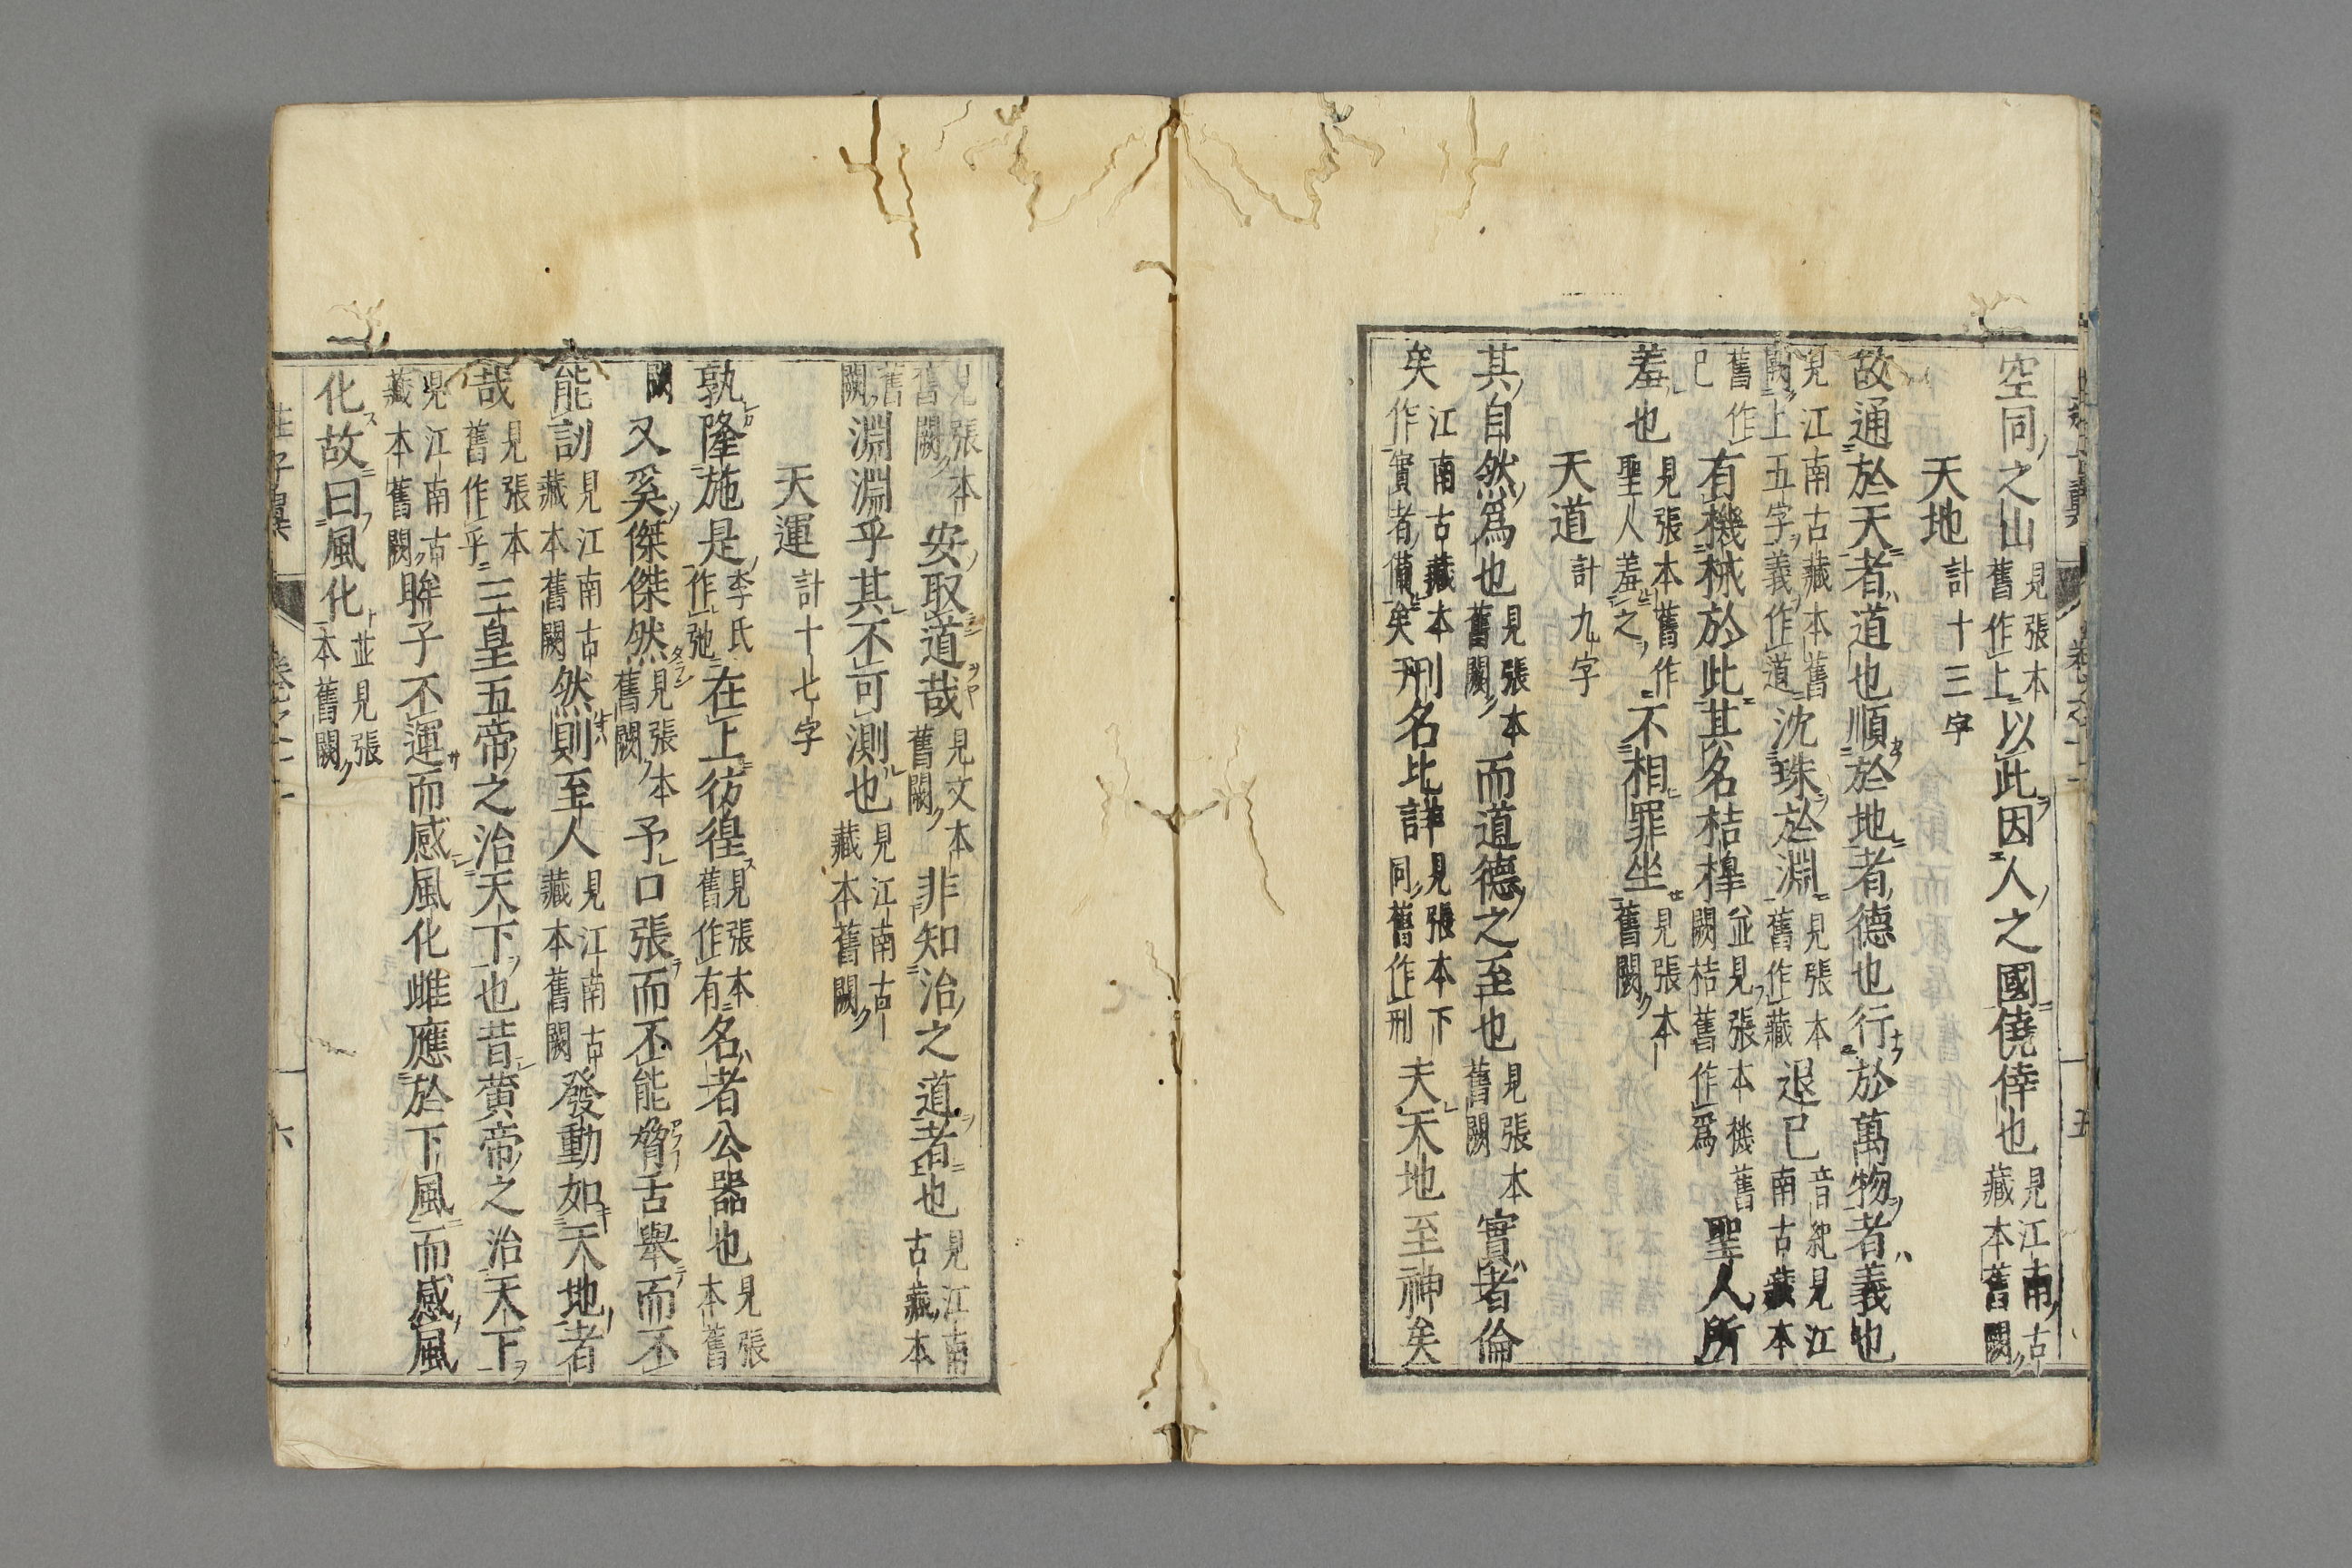 空同之山見張本舊作上以此因人之國僥倖也見江南古藏本舊闕
天地計十三字
故通於天者道也順於地者德也行於萬物者義也
見江南古藏本舊闕上五字義作道沈珠於淵見張本舊作藏退已音紀見江南古藏本
舊作已有機械於此其名桔槹並見張本機舊闕桔舊作爲聖人所
羞也見張本舊作聖人羞之不相罪坐見張本舊闕
天道計九字
其自然爲也見張本舊闕而道德之至也見張本舊闕實者倫
矣江南古藏本作實者備矣刑名比詳見張本下同舊作刑夫天地至神矣
見張本舊闕安取道哉見文本舊闕非知治之道者也見江南古藏本
舊闕淵淵乎其不可測也見江南古藏本舊闕
天運計十七字
孰隆施是李氏作弛在上彷徨見張本舊作有名者公器也見張本舊
闕又奚傑傑然見張本舊闕予口張而不能脅舌舉而不
能訒見江南古藏本舊闕然則至人見江南古藏本舊闕發動如天地者
哉見張本舊作乎三皇五帝之治天下也昔黄帝之治天下
見江南古藏本舊闕眸子不運而感風化雌應於下風而感風
化故曰風化並見張本舊闕
莊子翼
卷之十一
六
五